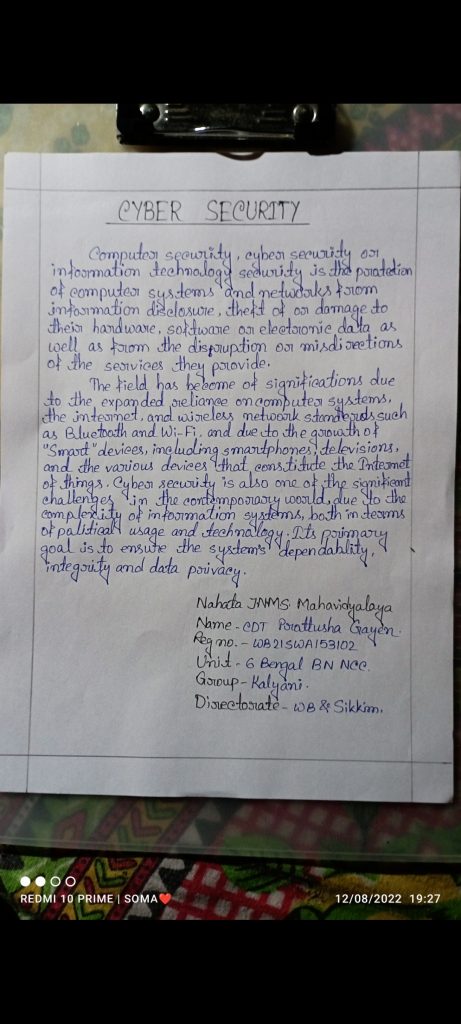 CYBER SECURITY
Computer security, cyber security or
information technology security is the protection
of computer systems and networks from
information disclosure, theft of or damage to
their hardware, software or electronic data as
well as from the disruption or misdirections
of the services they provide.
The field has become of significations due
to the expanded reliance on computer systems,
the internet, and wireless network standards such
as Bluetooth and Wi-Fi, and due to the growth of
"Smart" devices, including smartphones, televisions,
and the various devices that constitute the Internet
of things. Cyber security is also one of the significant
challenges in the contemporary world, due to the
complextity of information systems, both in terms
of political usage and technology. Its primary
goal is to ensure the system's dependablity,
integrity and data privacy.
Nahata JNMS Mahavidyalaya
Name - CDT Prattusha Gayen.
Reg no. - WB21SWA153102
Unit - 6 Bengal BN NCC.
Group - Kalyani.
Directorate - WB & Sikkim.
REDMI 10 PRIME | SOMA❤️
12/08/2022 19:27